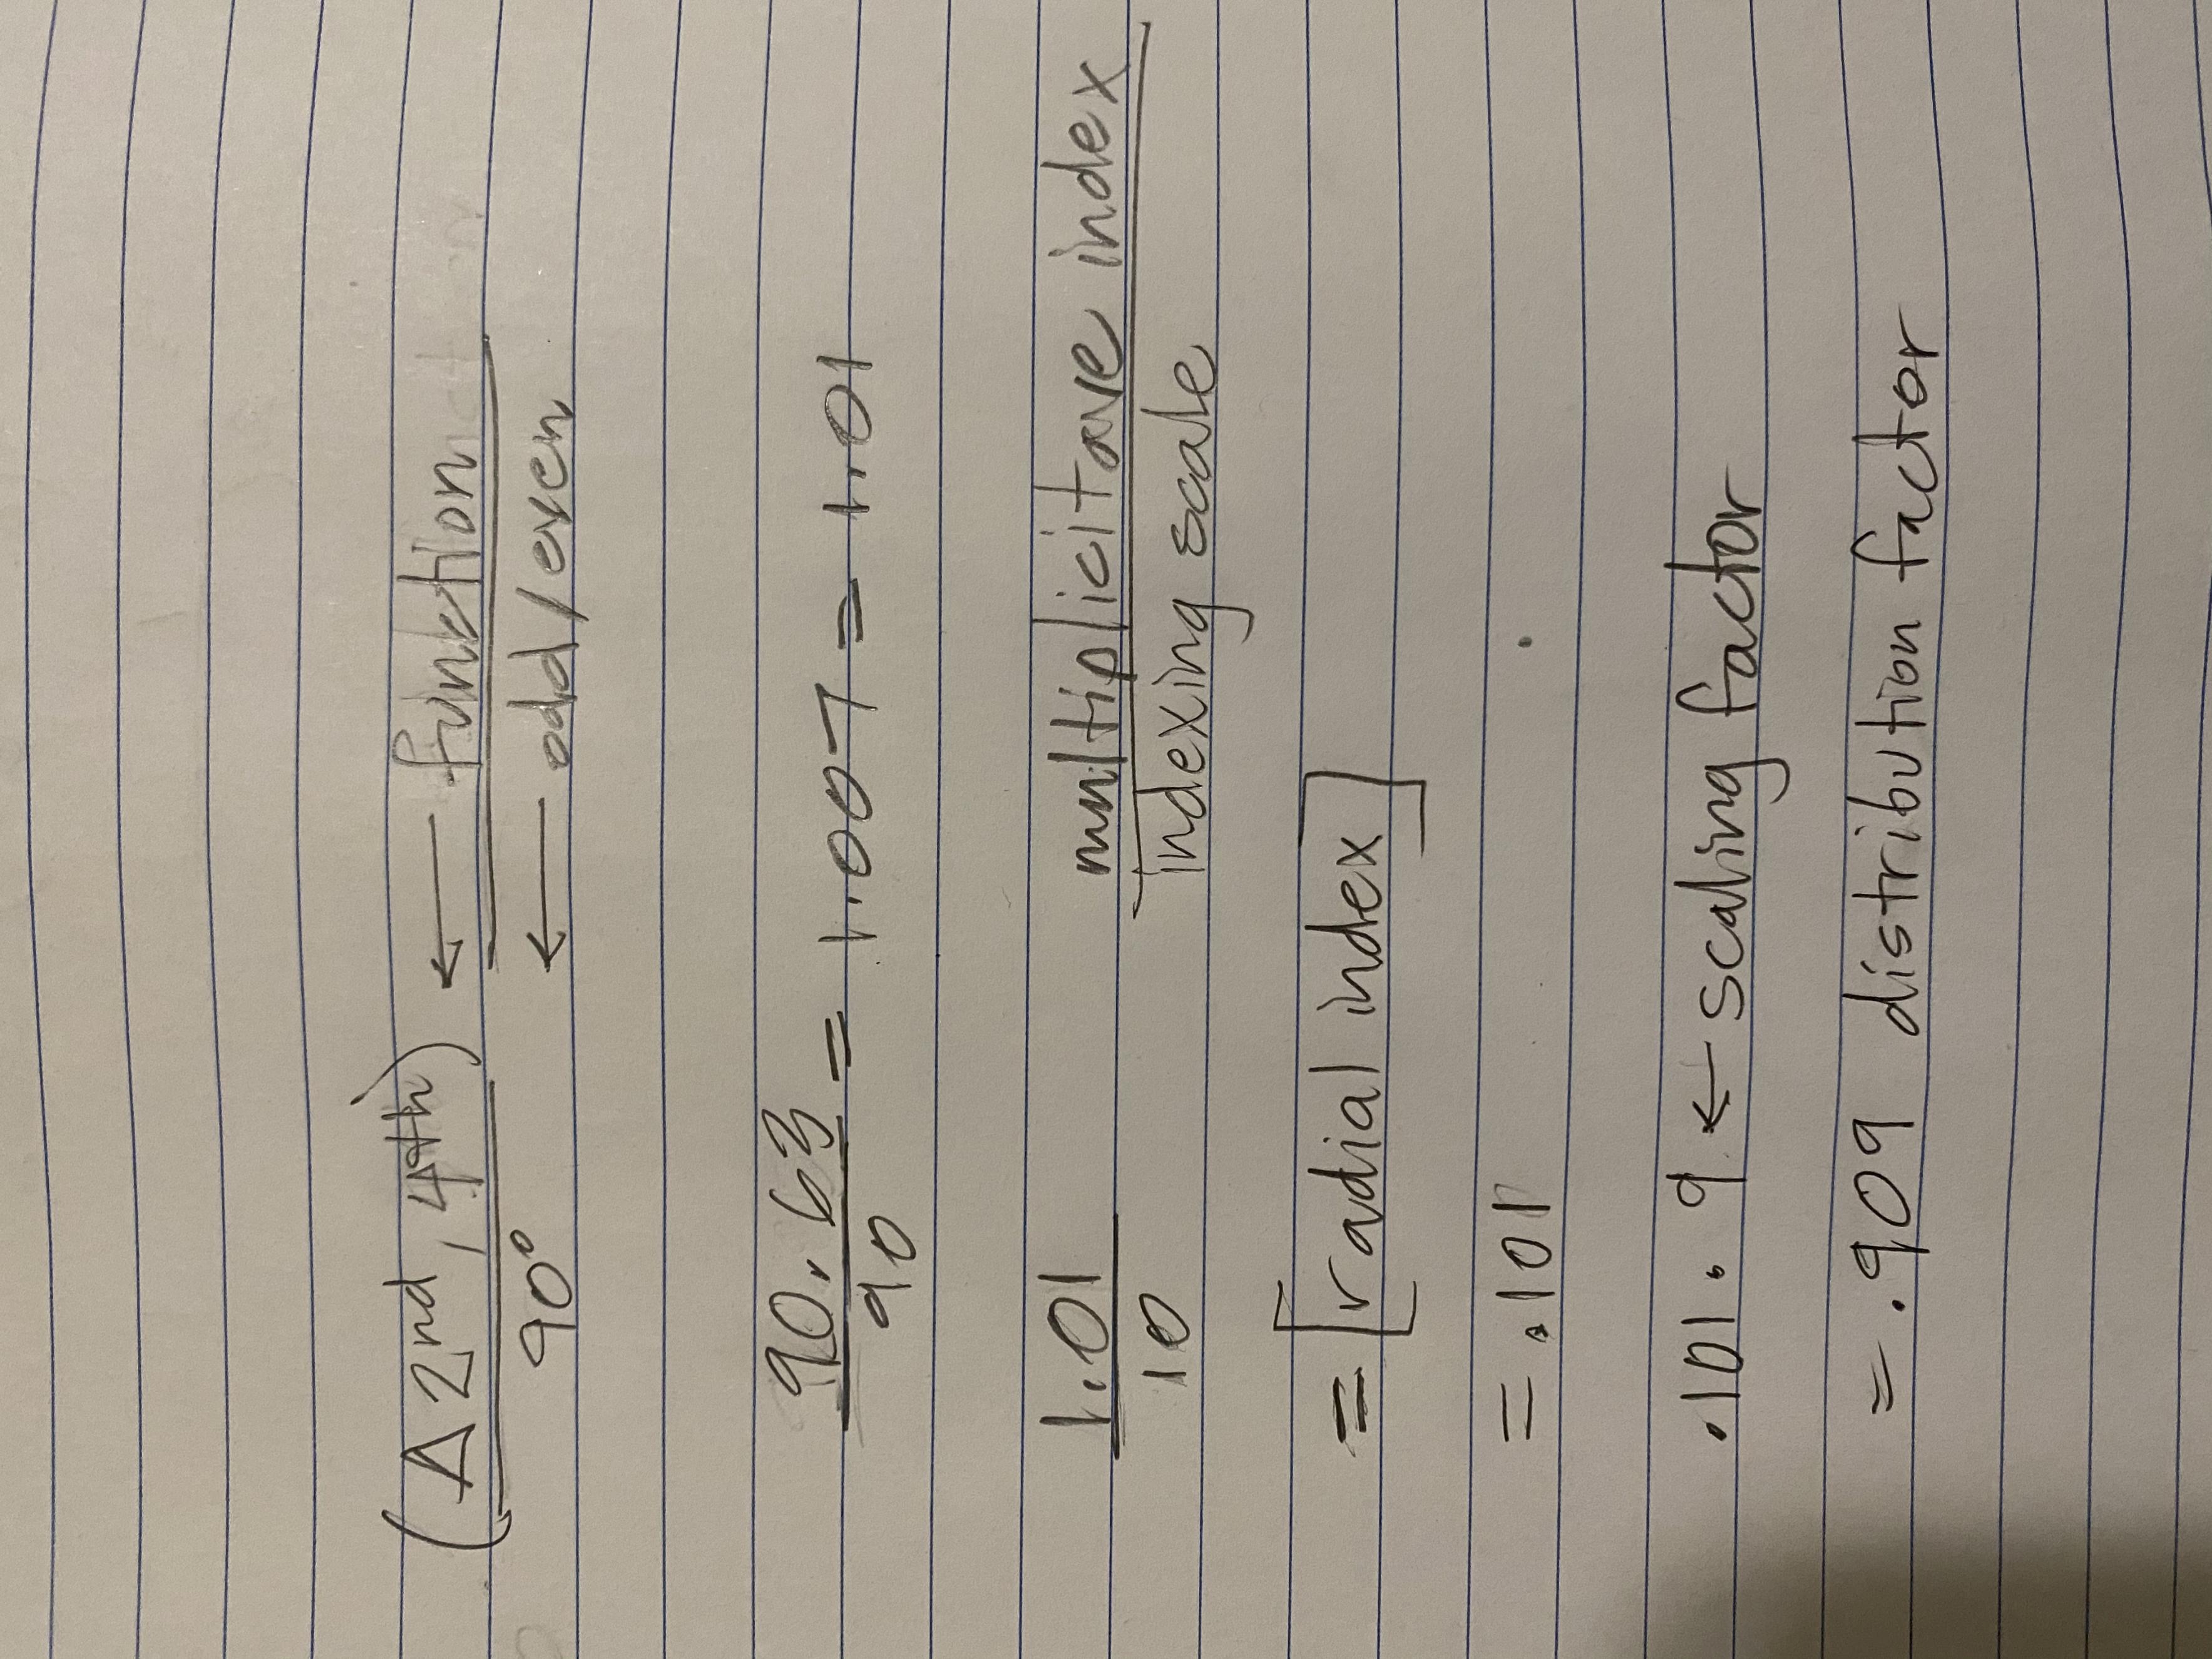 (Δ 2nd, 4th) ← function
90° ← odd/even
90.63 = 1.007 = 1.01
90
1.01 multiplicitave index
10 indexing scale
= [radial index]
= .101
.101 . 9 ← scaling factor
= .909 distribution factor